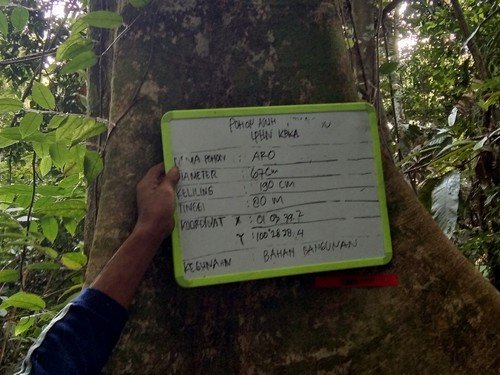 POHON ASUH
LPHN KOKA
NAMA POHON : ARO
DIAMETER : 67 cm
KELILING : 190 cm
TINGGI : 20 m
KOORDINAT X : 01 03 39.2
Y : 100°28 28.4
KEGUNAAN : BAHAN BANGUNAN